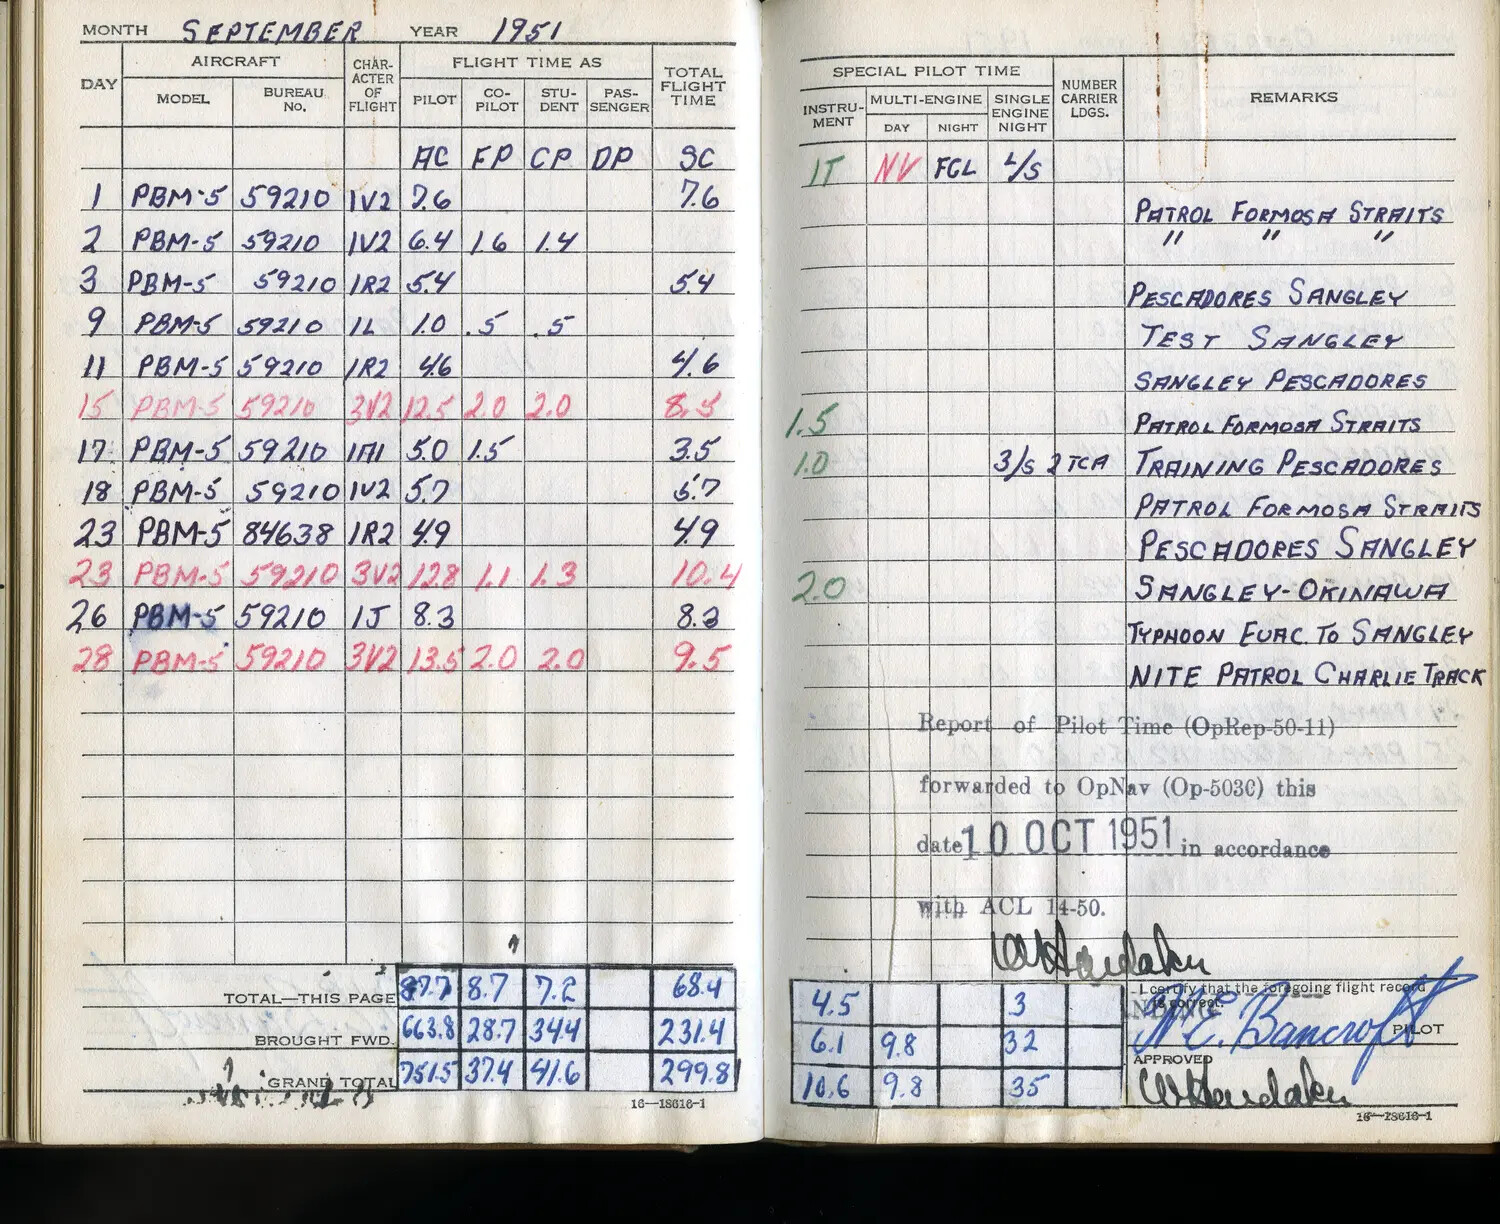 MONTH SEPTEMBER YEAR 1951
DAY AIRCRAFT CHAR-ACTER OF FLIGHT FLIGHT TIME AS TOTAL FLIGHT TIME
MODEL BUREAU NO. PILOT CO-PILOT STU-DENT PAS-SENGER
AC FP CP DP SC
1 PBM-5 59210 1V2 7.6 7.6
2 PBM-5 59210 1V2 6.4 1.6 1.4
3 PBM-5 59210 1R2 5.4 5.4
9 PBM-5 59210 1L 1.0 .5 .5
11 PBM-5 59210 1R2 4.6 4.6
15 PBM-5 59210 3V2 12.5 2.0 2.0 8.5
17 PBM-5 59210 1A1 5.0 1.5 3.5
18 PBM-5 59210 1V2 5.7 5.7
23 PBM-5 84638 1R2 4.9 4.9
23 PBM-5 59210 3V2 12.8 1.1 1.3 10.4
26 PBM-5 59210 1J 8.3 8.3
28 PBM-5 59210 3V2 13.5 2.0 2.0 9.5
TOTAL—THIS PAGE 87.7 8.7 7.2 68.4
BROUGHT FWD. 663.8 28.7 34.4 231.4
GRAND TOTAL 751.5 37.4 41.6 299.8
16—18616-1
SPECIAL PILOT TIME NUMBER CARRIER LDGS. REMARKS
INSTRU-MENT MULTI-ENGINE SINGLE ENGINE NIGHT
DAY NIGHT
IT NV FCL L/S
PATROL FORMOSA STRAITS
" " "
PESCADORES SANGLEY
TEST SANGLEY
SANGLEY PESCADORES
1.5 PATROL FORMOSA STRAITS
1.0 3/S 2 TCA TRAINING PESCADORES
PATROL FORMOSA STRAITS
PESCADORES SANGLEY
2.0 SANGLEY-OKINAWA
TYPHOON EVAC. TO SANGLEY
NITE PATROL CHARLIE TRACK
Report of Pilot Time (OpRep-50-11)
forwarded to OpNav (Op-503C) this
date 10 OCT 1951 in accordance
with ACL 14-50.
4.5 3
I certify that the foregoing flight record is correct.
6.1 9.8 32
H.E. Bancroft PILOT
APPROVED
10.6 9.8 35
16—18616-1